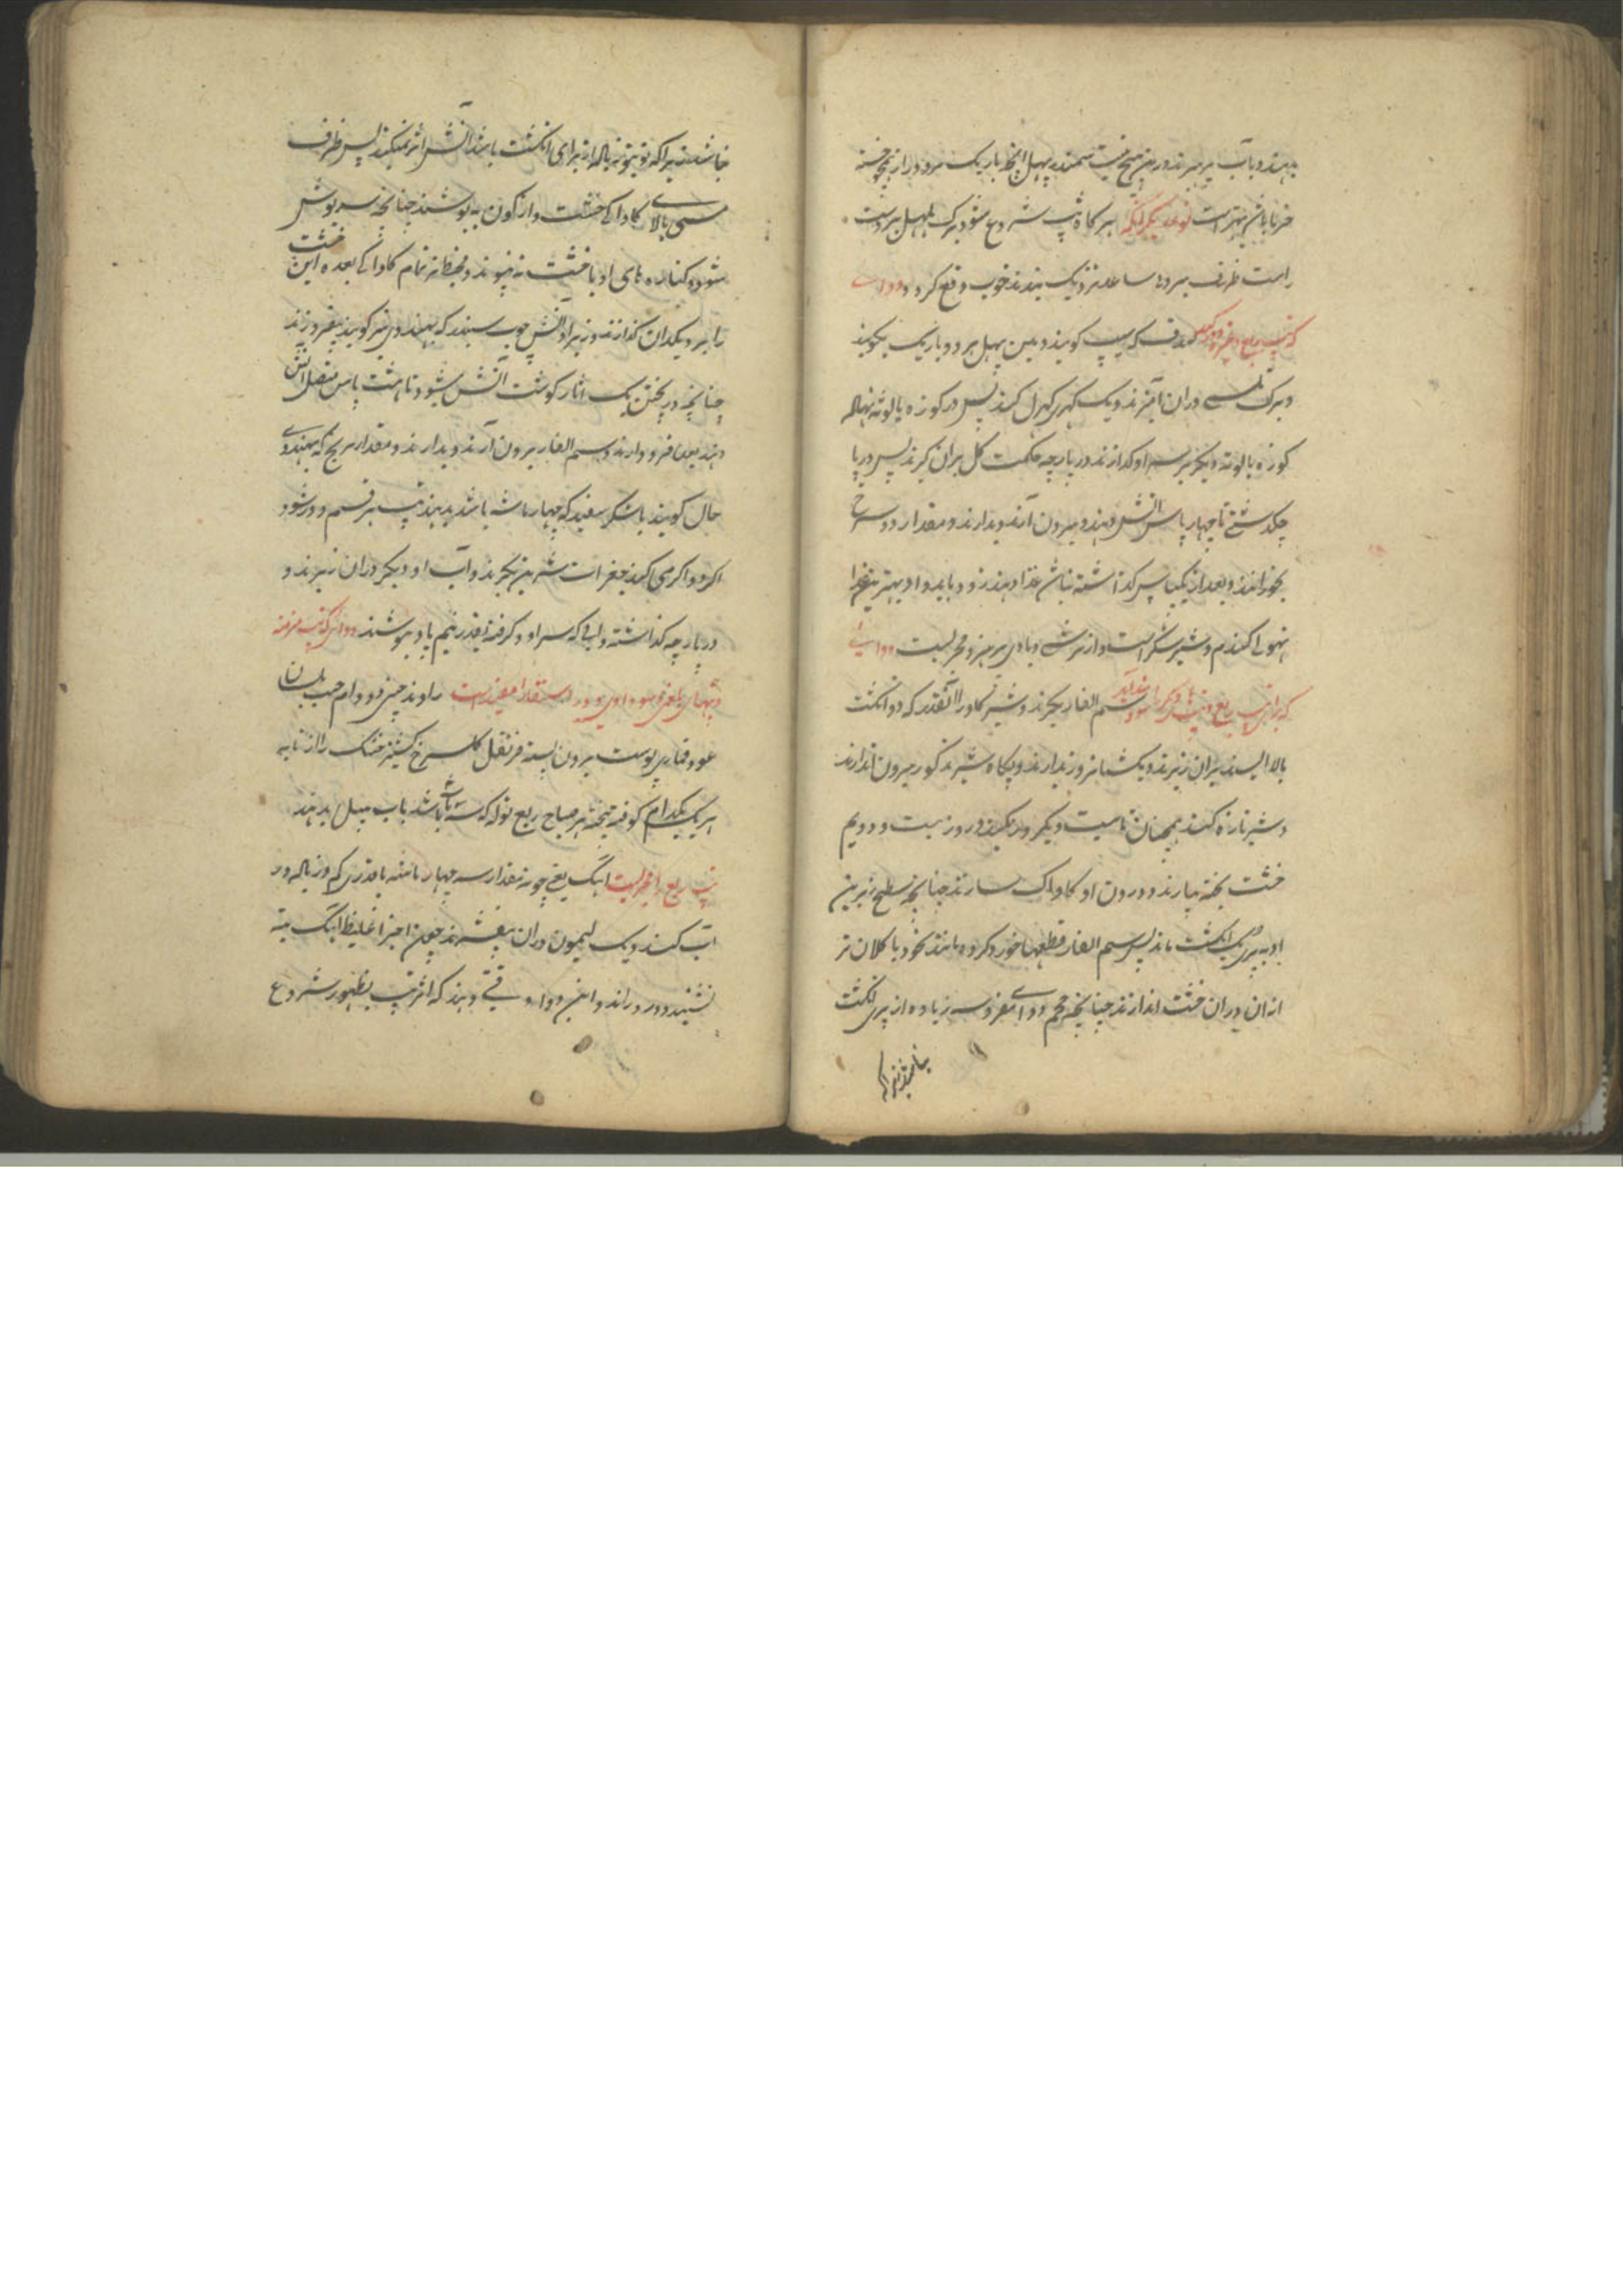 بدهند و باب پرهیزند درین هیچ نیست سمندر پهل ایضا باریک برود از نیمچه حسنه
خرمایان بهتر است نوعدیکر آنکه هر کاه تپ شروع شود برک پهل بر دست
راست طرف بیرون ساعد نزدیک بندند خوب وقع کردد دوای
که تپ ربع و غیره دور کند صدف که سیپ کویند و مین پهل هر دو باریک بکوبند
و برک تلسی دران آمیزند و یک کهری کهرل کنند پس در کوزه یا لوته نهاله
کوزه یا لوته دیکر بر سر او کذارند در پارچه حکمت کل بران کیرند پس در پا
چکدشتی تا چهار پاس آتش دهند و بیرون آرند و بدارند و مقدار دو سرخ
بخورانند و بعد از یکپاس کذاشته نباشن غذا دهند زود باید و او بهترین غذا
نهولی کندم و شیر شکر است و از ترشی و بادی پرهیز و مجربست دوایی
که برای تپ ربع و تپهای دیکر سودمند آید سم الفار بکیرند و شیر کاو را آنقدر که دو انکشت
بالا ایستد بران ریزند و یک شبانروز بدارند و پکاه شیر مذکور بیرون اندازند
و شیر تازه کنند همچنان تا بیست و یکروز بکنند و روز بیست و دویم
خشت پخته بیارند و درون او کاواک سازند چنانچه سطح زیرین
او به پری یک انکشت ماند پس سم الفار قطعها خورد کرده مانند نخود یا کلان تر
از آن دران خشت اندازند چنانچه حجم دوای مفروسه زیاده از پری انکشت
نباشد زیرا که
نباشد زیرا که تو بتو ته بالا از برای انکشت باشد آتش اثر نمیکند پس ظرف
مسی بالای کاواکی خشت واژکون بپوشند چنانچه سرپوش
شود و کناره های او با خشت به پیوند و محیط به تمام کاواکی بعده این خشت
را بر دیکدان کذارند و زیر او آتش چوب سنبد که بهندوی نیر کویند بیفروزند
چنانچه در پختن یک آثار کوشت آتش میشود تا هشت پاس متصل آتش
دهند بعد فرود آرند و سم الفار بیرون آرند و بدارند و مقدار برنج که بهندوی
حال کویند با شکر سفید که چهار ماشه باشد بدهند تپ هر قسم دور شود
اکر دوا کرمی کند جغرات شیرین بکیرند و آب او دیکر دران ریزند و
در پارچه کذاشته و آبی که سر او کرفته آنقدر نیم پاو بنوشند دوای که تپ مزمنه
و تپهای بلغمی و سوداوی و ورد استسقا را مفید است راوند چینی دو درم حب بلسان
عود قماری پوست بیرون پسته قرنفل کل سرخ کشنیز خشک رازیانه
هر یک یکدام کوفته بیخته هر صباح ربع توله که سه ماشه باشد باب پیپل بدهند
تپ ربع را مجربست اینک یعنی چونه مقدار سه چهار ماشه یا قدری کم و زیاده در
آب کنند و یک لیمون دران بیفشرند چون اجزا غلیظ اینک ته
نشیند و درد راند و این دوا وقتی دهند که اثر تپ بظهور شروع